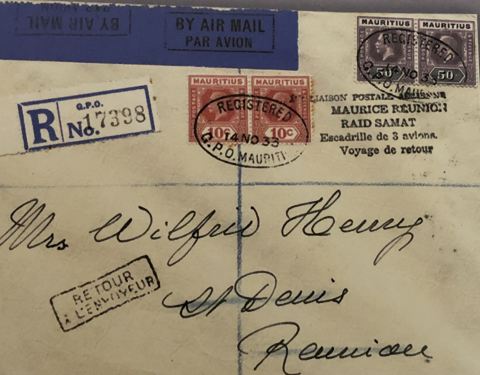 BY AIR MAIL
PAR AVION
BY AIR MAIL
PAR AVION
MAURITIUS
MAURITIUS
50
50
REGISTERED
14 NO 33
G.P.O. MAURITIUS
MAURITIUS
MAURITIUS
10c
10c
REGISTERED
14 NO 33
G.P.O. MAURITI
G.P.O.
R No. 17398
LIAISON POSTALE AERIENNE
MAURICE REUNION
RAID SAMAT
Escadrille de 3 avions.
Voyage de retour
Mrs Wilfrid Henry
St Denis
Reunion
RETOUR
A L'ENVOYEUR